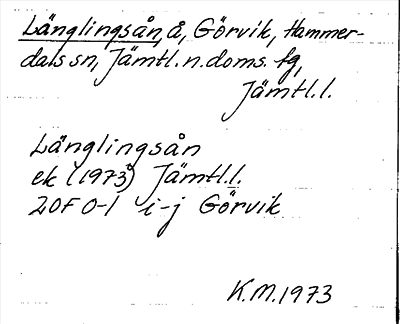 Länglingsån, å, Görvik, Hammer-
dals sn, Jämtl. n. doms. tg,
Jämtl. l.
Länglingsån
ek (1973) Jämtl. l.
20F 0-1 i-j Görvik
K.M. 1973